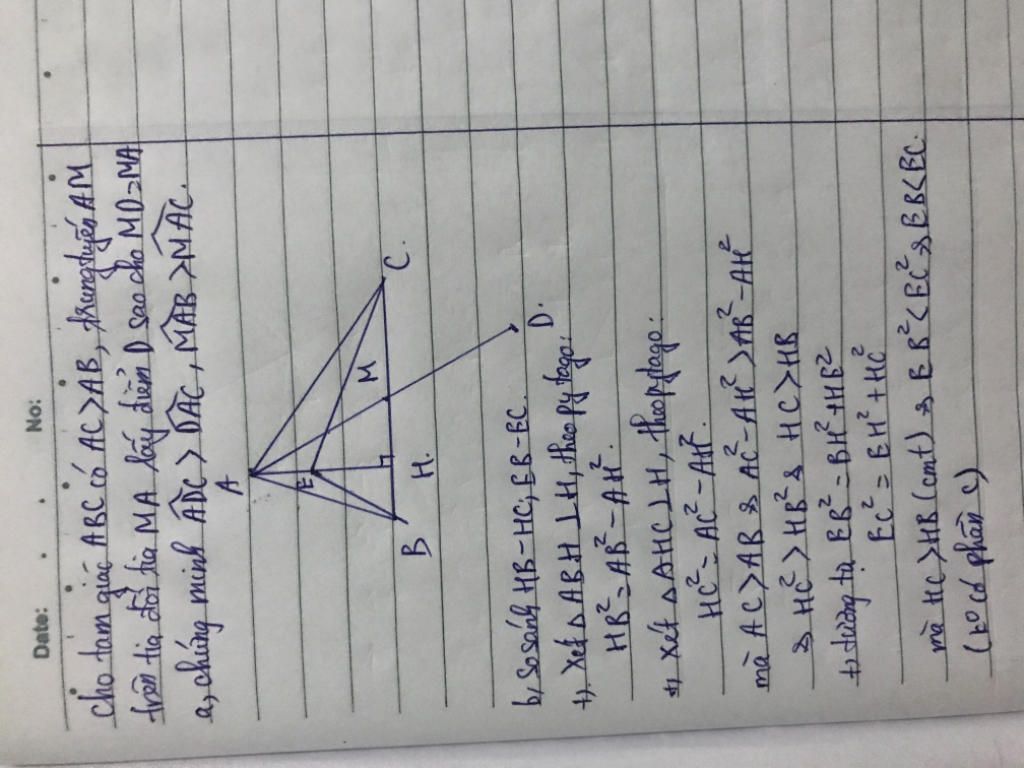 Date:
No:
cho tam giác ABC có AC > AB, trung tuyến AM
trên tia đối tia MA lấy điểm D sao cho MD = MA
a, chứng minh ADC > DAC, MAB > MAC.
A
E
M
C
B
H.
D.
b, So sánh HB - HC, EB - EC.
+). Xét △ABH ⊥ H, theo pytago:
HB² = AB² - AH².
+, xét △AHC ⊥ H, theo pytago:
HC² = AC² - AH².
mà AC > AB => AC² - AH² > AB² - AH²
=> HC² > HB² => HC > HB
+, tương tự EB² = BH² + HE²
EC² = EH² + HC²
mà HC > HB (cmt) => EB² < EC² => EB < EC.
(ko có phần c)